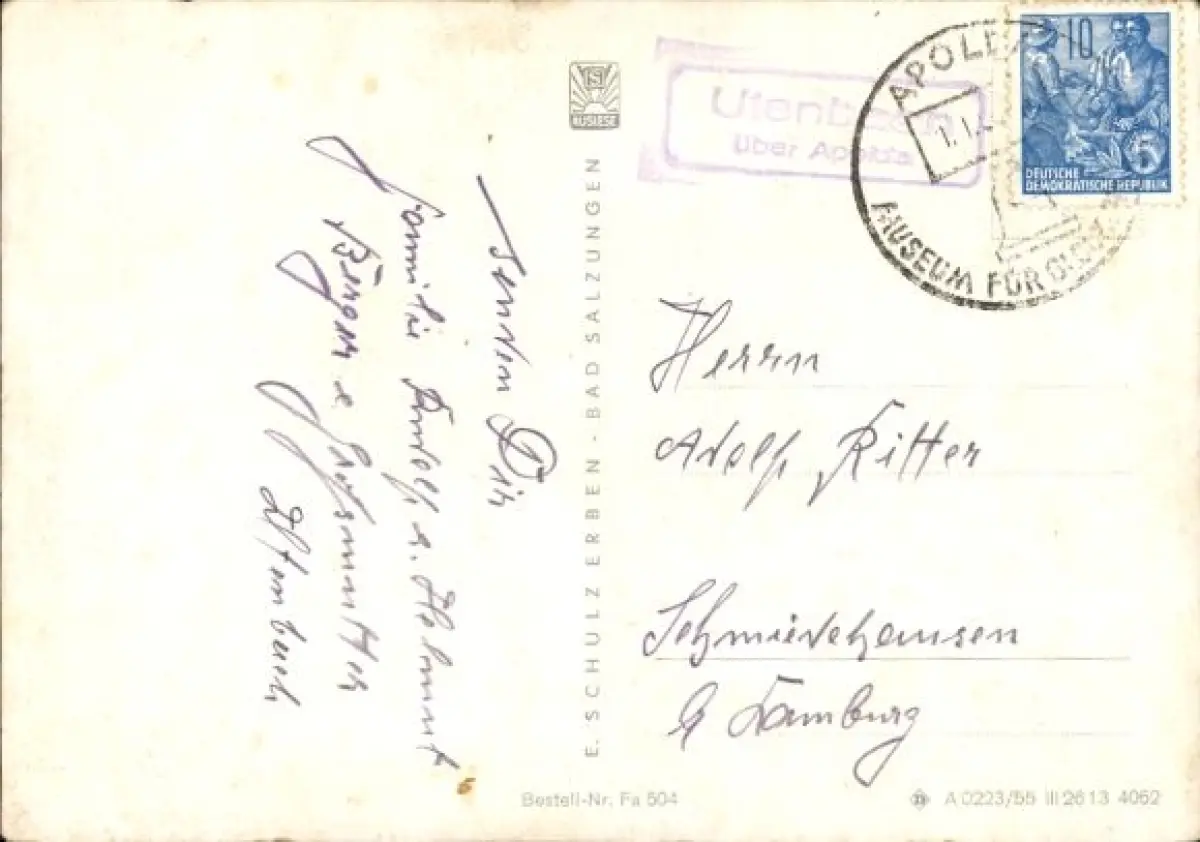 senden Dir
Familie Rudolf u. Helmut
u Großmutter
Utenbach
AUSLESE
E. SCHULZ ERBEN - BAD SALZUNGEN
Utenbach
über Apolda
APOLDA
1.1.
MUSEUM FÜR
10
5
DEUTSCHE
DEMOKRATISCHE REPUBLIK
Herrn
Adolf Ritter
Schmiedehausen
Camburg
Bestell-Nr. Fa 504
A 0223/55 III 26 13 4062